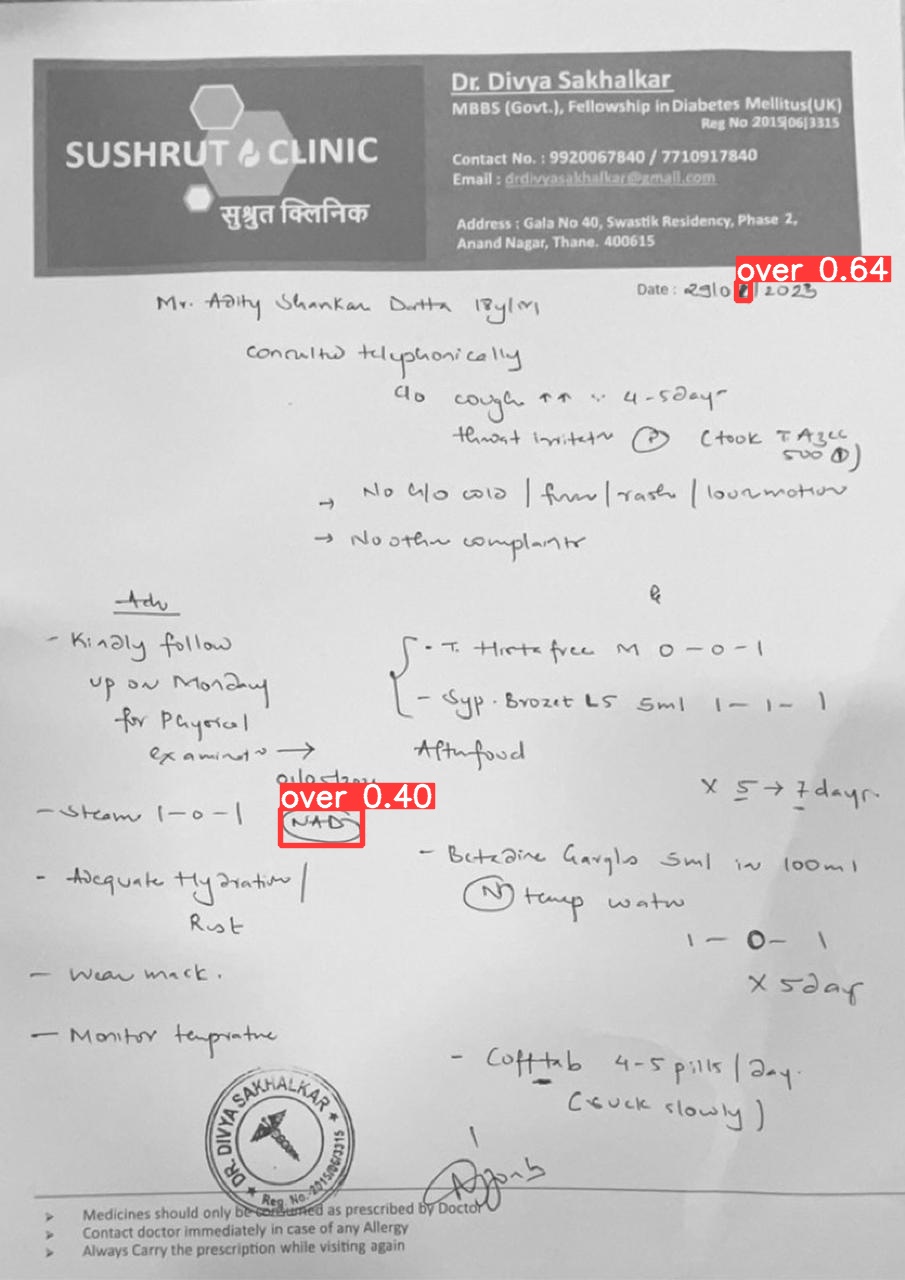 SUSHRUT CLINIC
सुश्रुत क्लिनिक
Dr. Divya Sakhalkar
MBBS (Govt.), Fellowship in Diabetes Mellitus(UK)
Reg No 2015|06|3315
Contact No. : 9920067840 / 7710917840
Email : drdivyasakhalkar@gmail.com
Address : Gala No 40, Swastik Residency, Phase 2,
Anand Nagar, Thane. 400615
over 0.64
Date : 29/0 /2023
Mr. Adity Shankar Dutta 18y/M
consulted telephonically
c/o cough ↑↑ 4-5days
throat irritatn (took T Azee
500 ①)
→ No c/o cold / fever / rash / loosemotion
→ No other complaints
Adv
- Kindly follow
up on Monday
for Physical
examinatn →
over 0.40
NAD
- Steam 1-0-1
- Adequate Hydration /
Rest
- Wear mask.
- Monitor temprature
- T. Histafree M 0-0-1
- Syp. Brozet LS 5ml 1-1-1
After food
X 5 → 7 days.
- Betadine Gargles 5ml in 100ml
(N) temp water
1-0-1
X 5 day
- Cofftab 4-5 pills / day.
(suck slowly)
DR. DIVYA SAKHALKAR
Reg. No.-2015/06/3315
➤ Medicines should only be consumed as prescribed by Doctor
➤ Contact doctor immediately in case of any Allergy
➤ Always Carry the prescription while visiting again